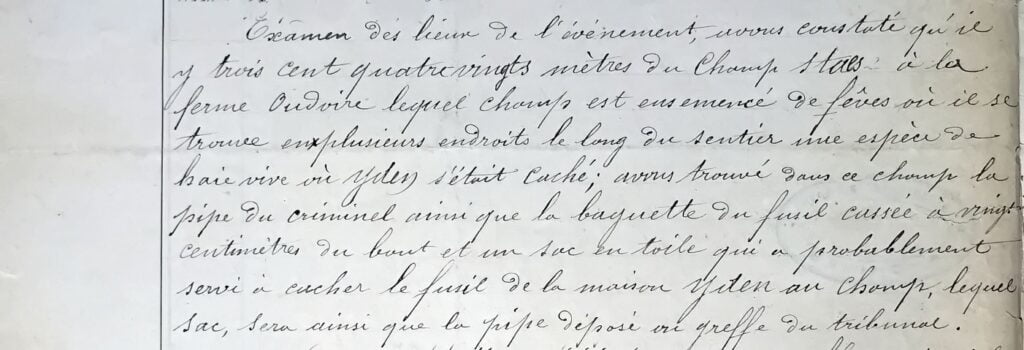 Exâmen des lieux de l'événement, avons constaté qu'il
y trois cent quatrevingts mètres du Champ Staes à la
ferme Oudoire lequel champ est ensemencé de fêves où il se
trouve en plusieurs endroits le long du sentier une espèce de
haie vive où Yden s'était caché; avons trouvé dans ce champ la
pipe du criminel ainsi que la baguette du fusil cassée à vingt
centimètres du bout et un sac en toile qui a probablement
servi à cacher le fusil de la maison Yden au Champ, lequel
sac, sera ainsi que la pipe déposé au greffe du tribunal.